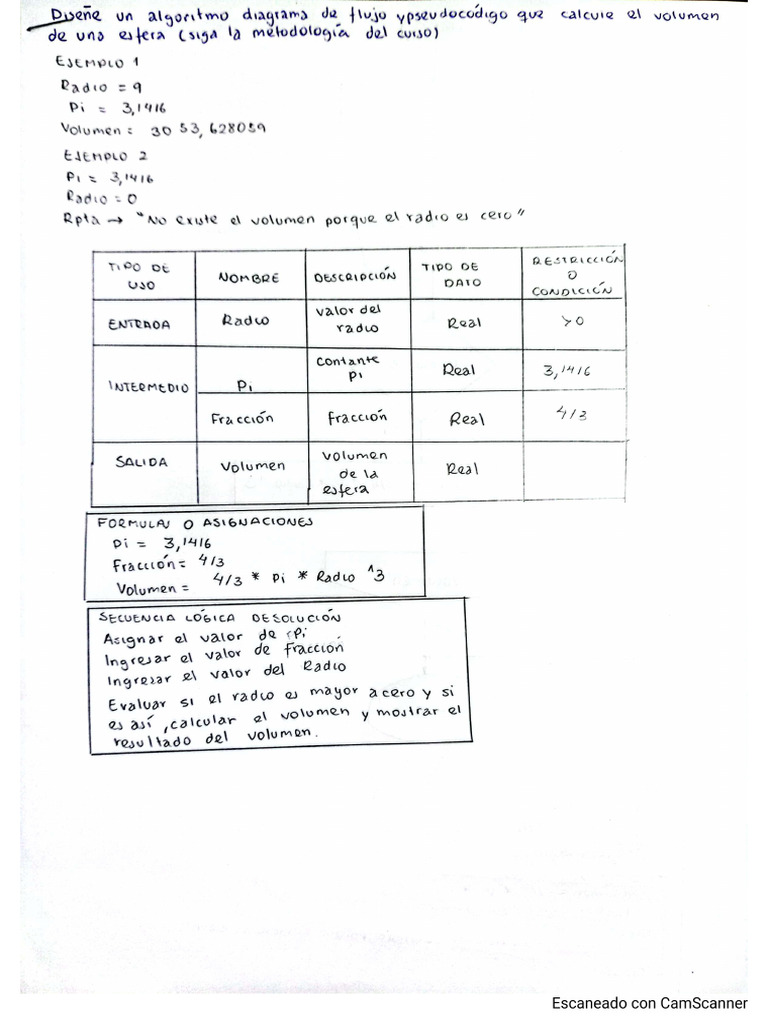 Diseñe un algoritmo diagrama de flujo y pseudocódigo que calcule el volumen
de una esfera (siga la metodología del curso)
EJEMPLO 1
Radio = 9
Pi = 3,1416
Volumen = 30 53, 628059
EJEMPLO 2
Pi = 3,1416
Radio = 0
Rpta → "No existe el volumen porque el radio es cero"
TIPO DE USO NOMBRE DESCRIPCIÓN TIPO DE DATO RESTRICCIÓN O CONDICIÓN
ENTRADA Radio valor del radio Real >0
INTERMEDIO Pi contante Pi Real 3,1416
Fracción fracción Real 4/3
SALIDA Volumen volumen de la esfera Real
FORMULAS O ASIGNACIONES
Pi = 3,1416
Fracción = 4/3
Volumen = 4/3 * Pi * Radio ^3
SECUENCIA LÓGICA DE SOLUCIÓN
Asignar el valor de Pi
Ingresar el valor de fracción
Ingresar el valor del Radio
Evaluar si el radio es mayor a cero y si
es así, calcular el volumen y mostrar el
resultado del volumen.
Escaneado con CamScanner